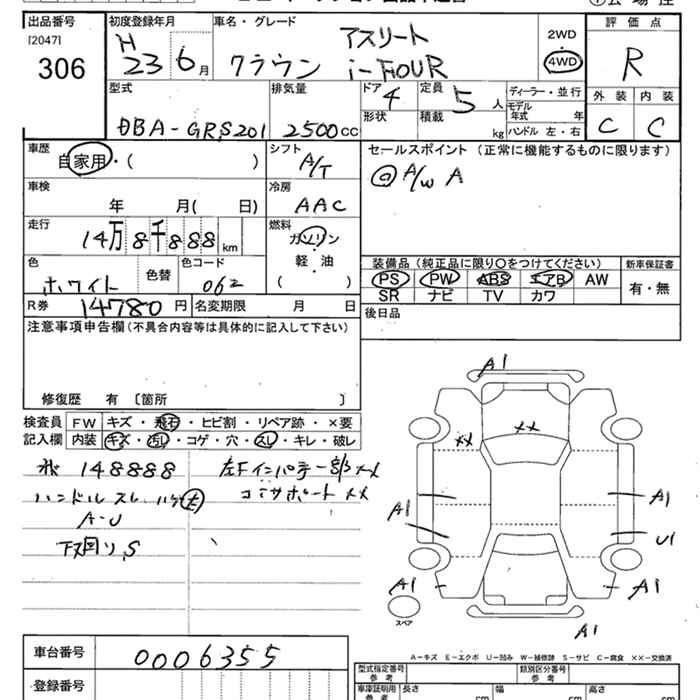 出品番号
[2047]
306
初度登録年月
H
23 6月
車名・グレード
アスリート
クラウン i-FOUR
2WD
・
4WD
評価点
R
外装 内装
C C
型式
DBA-GRS201
排気量
2500cc
ドア 4
定員 5人
形状
積載 kg
ディーラー・並行
モデル年式 年
ハンドル 左・右
車歴
自家用・( )
シフト
A/T
セールスポイント (正常に機能するものに限ります)
@ A/W A
車検
年 月( 日)
冷房
AAC
走行
14万8千888 km
燃料
ガソリン
軽・油
( )
色
ホワイト
色替
色コード
062
装備品 (純正品に限り〇をつけてください)
PS PW ABS エアB AW
SR ナビ TV カワ
新車保証書
有・無
R券 14780円
名変期限 月 日
後日品
注意事項申告欄(不具合内容等は具体的に記入して下さい)
修復歴 有 〔箇所 〕
検査員
記入欄
FW キズ・飛石・ヒビ割・リペア跡・×要
内装 キズ・汚レ・コゲ・穴・スレ・キレ・破レ
148888
左Fインパネ一部××
ハンドルスレ ハゲ大
コアサポート××
A-U
下回りS
A1
××
××
A1
A1
U1
A1
A1
A1
スペア
A-キズ E-エクボ U-凹み W-補修跡 S-サビ C-腐食 ××-交換済
車台番号
0006355
登録番号
型式指定番号
参考
類別区分番号
参考
車庫証明用
参考
長さ cm
幅 cm
高さ cm